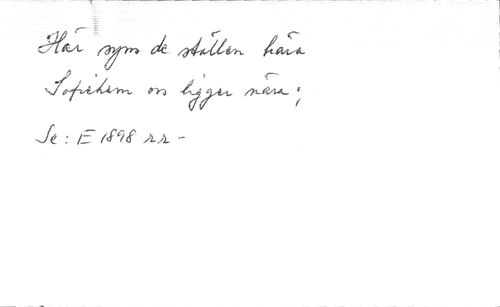 Här syns de ställen kära
Sofiehem oss ligger nära;
Se: E 1898 r.r -